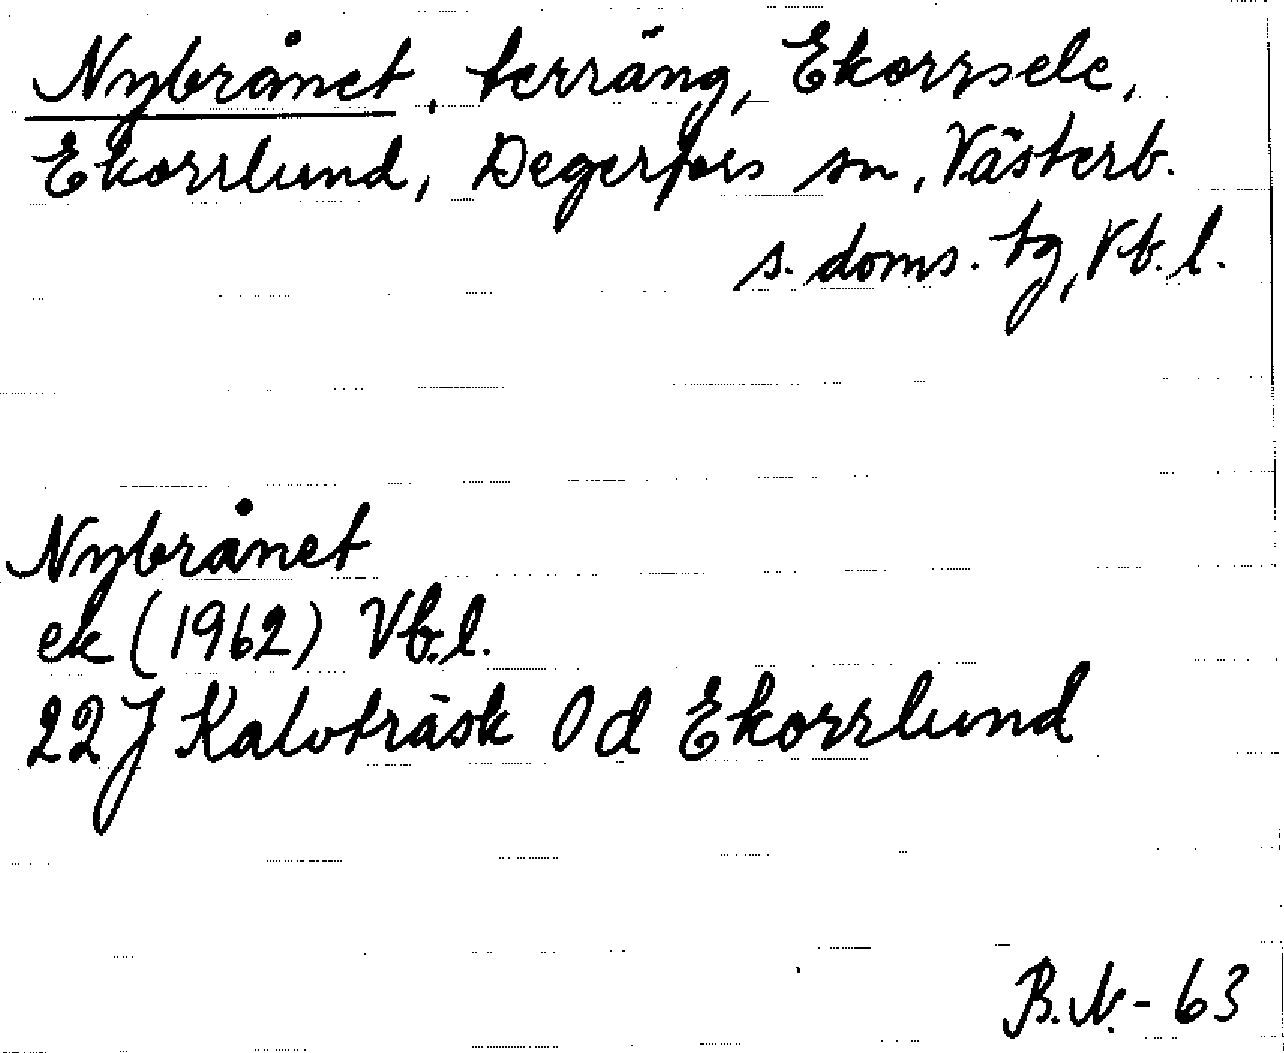 Nybrånet, terräng, Ekorrsele,
Ekorrlund, Degerfors sn, Västerb.
s. doms. tg, Vb. l.
Nybrånet
ek (1962) Vb.l.
22J Kalvträsk 0d Ekorrlund
B.N.- 63